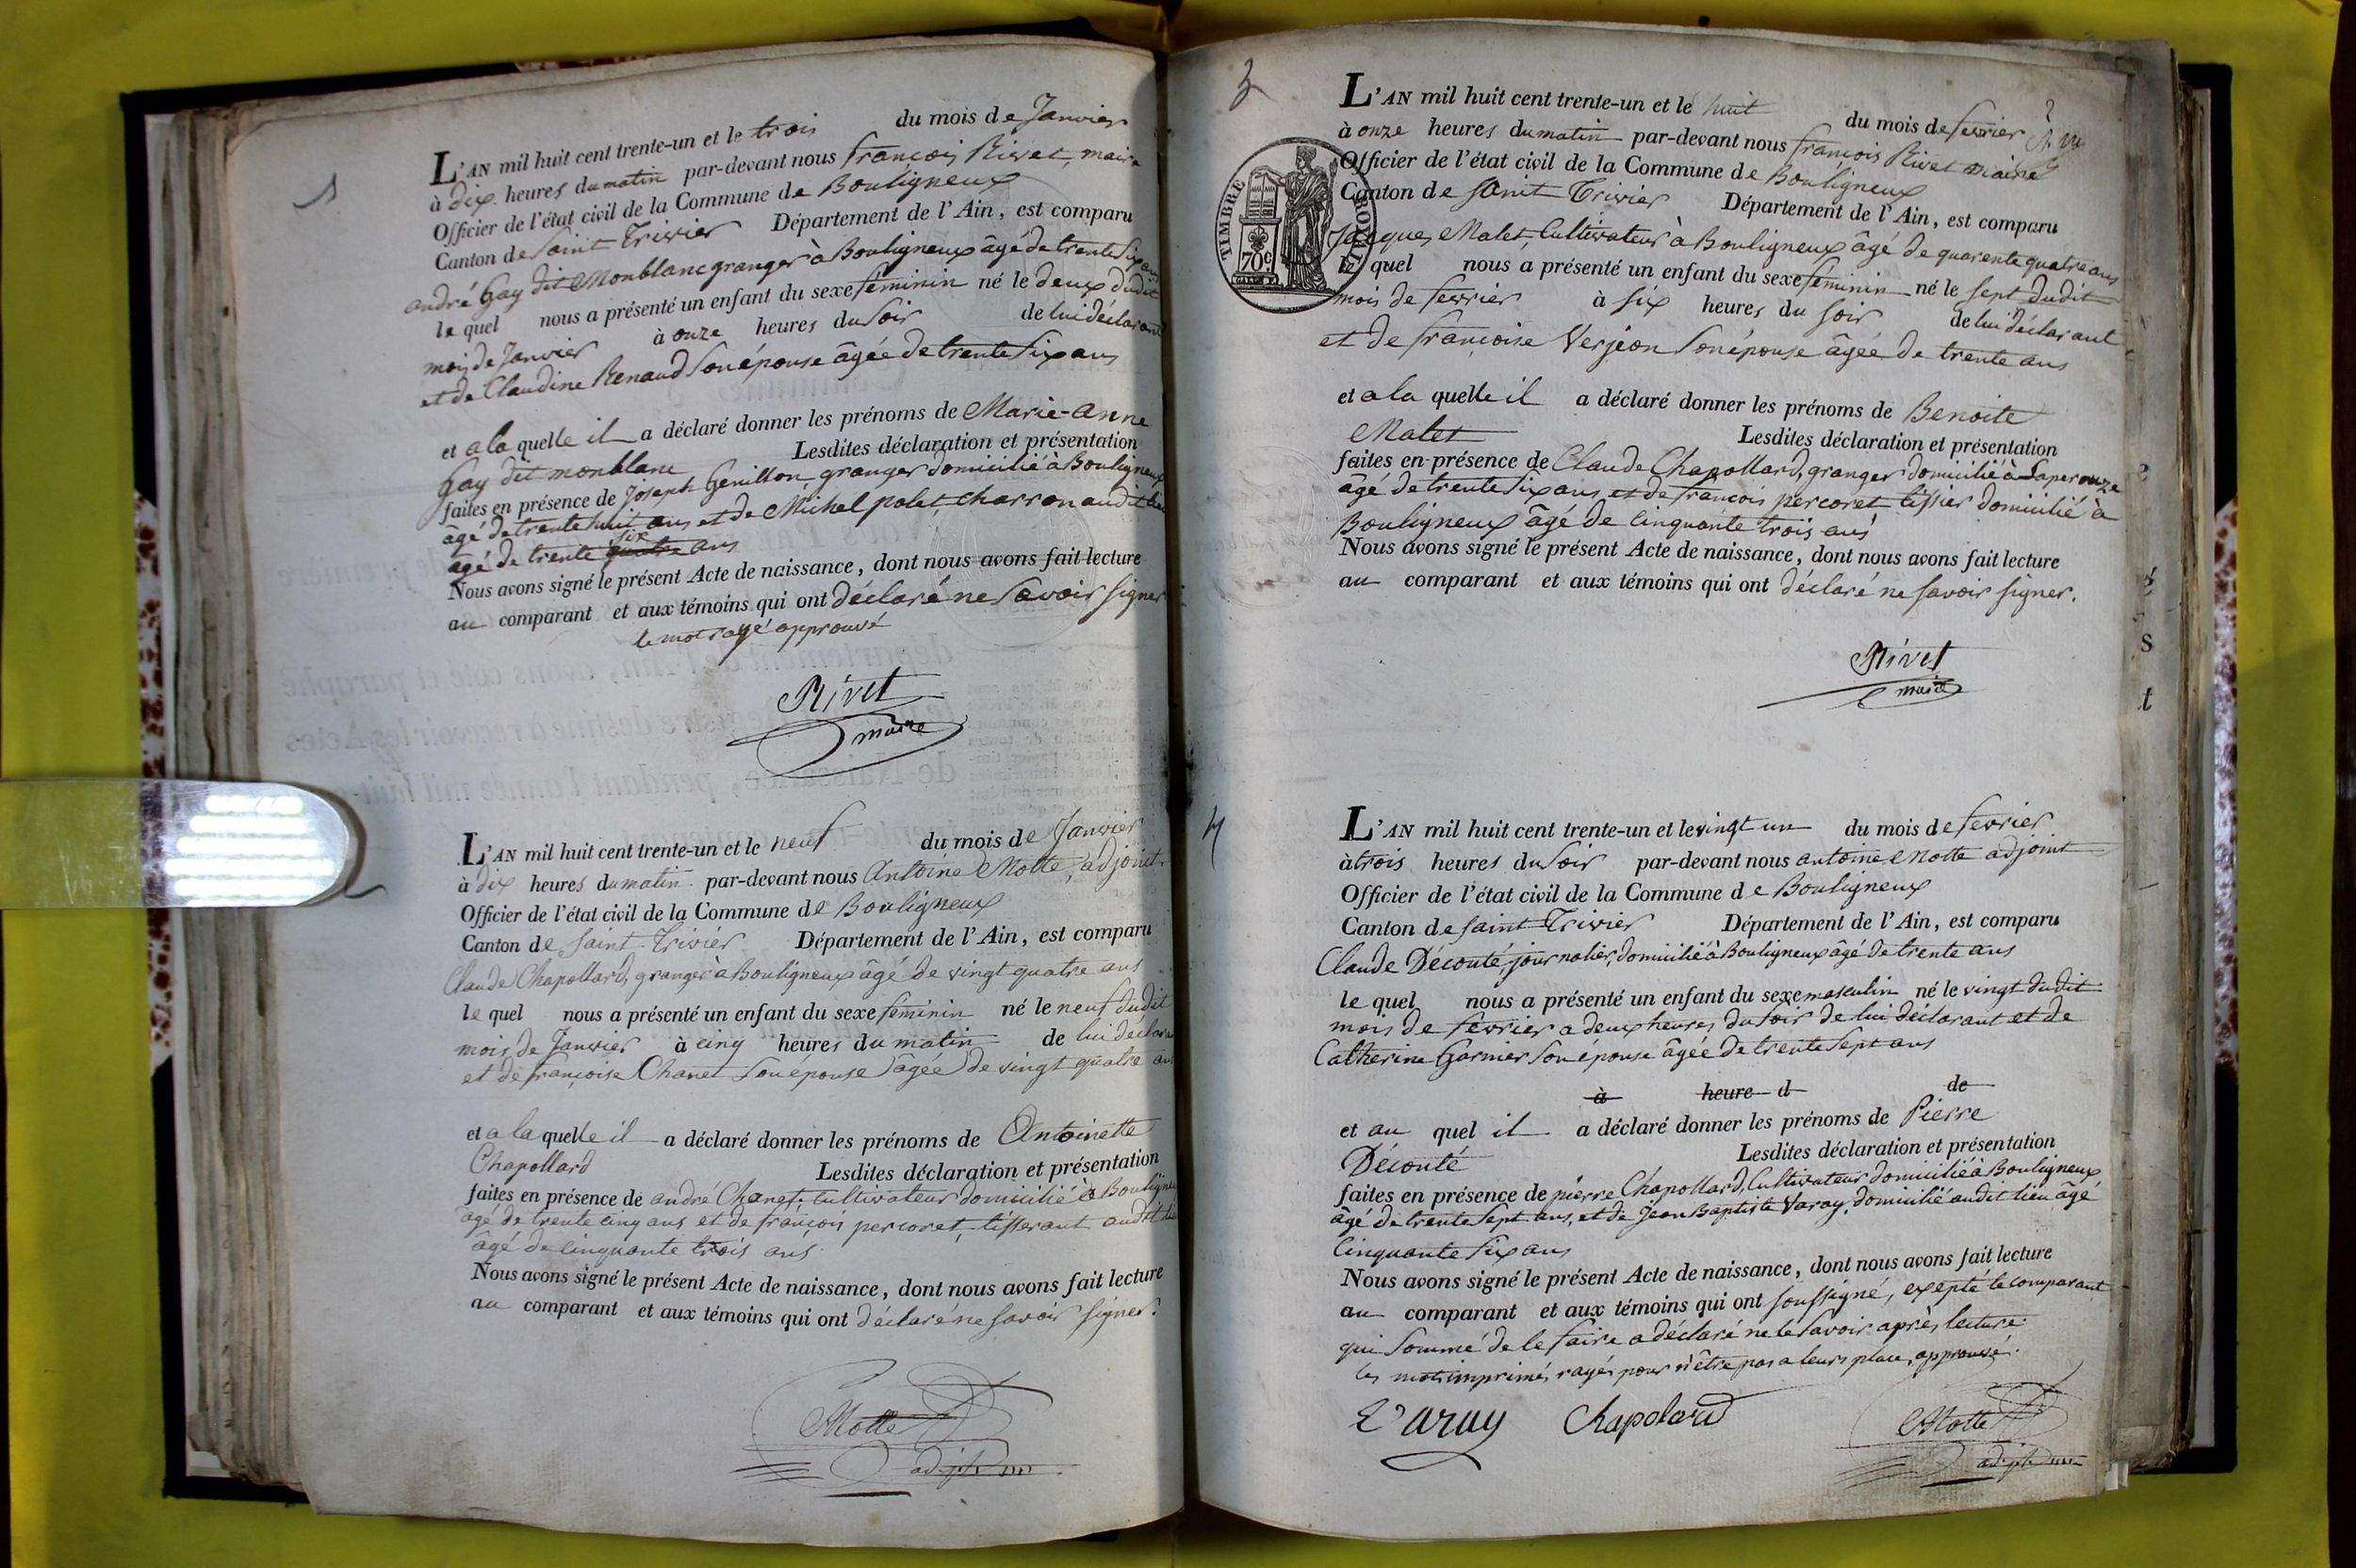 1
L'AN mil huit cent trente-un et le trois du mois de Janvier
à dix heures du matin par-devant nous françois Rivet, maire
Officier de l'état civil de la Commune de Bouligneux
Canton de Saint Trivier Département de l'Ain, est comparu
andré Gay dit Monblanc granger à Bouligneux âgé de trente six ans
le quel nous a présenté un enfant du sexe féminin né le deux dudit
mois de Janvier à onze heures du soir de lui déclarant
et de Claudine Renaud son épouse âgée de trente six ans
et a la quelle il a déclaré donner les prénoms de Marie-Anne
Gay dit monblanc Lesdites déclaration et présentation
faites en présence de Joseph Genillon, granger domicilié à Bouligneux
âgé de trente huit ans et de Michel polet charron audit lieu
six
âgé de trente quatre ans
Nous avons signé le présent Acte de naissance, dont nous avons fait lecture
au comparant et aux témoins qui ont déclaré ne savoir signer
le mot rayé approuvé
Rivet
maire
L'AN mil huit cent trente-un et le neuf du mois de Janvier
à dix heures du matin par-devant nous Antoine Motte, adjoint
Officier de l'état civil de la Commune de Bouligneux
Canton de Saint-Trivier Département de l'Ain, est comparu
Claude Chapollard, granger à Bouligneux âgé de vingt quatre ans
le quel nous a présenté un enfant du sexe féminin né le neuf dudit
mois de Janvier à cinq heures du matin de lui déclarant
et de françoise Chanet son épouse âgée de vingt quatre ans
et a la quelle il a déclaré donner les prénoms de Antoinette
Chapollard Lesdites déclaration et présentation
faites en présence de andré Chanet, cultivateur domicilié à Bouligneux
âgé de trente cinq ans et de françois percoret, tisserant audit lieu
âgé de cinquante trois ans
Nous avons signé le présent Acte de naissance, dont nous avons fait lecture
au comparant et aux témoins qui ont déclaré ne savoir signer.
Motte
adjt
3
L'AN mil huit cent trente-un et le huit du mois de fevrier
à onze heures du matin par-devant nous françois Rivet maire
Officier de l'état civil de la Commune de Bouligneux
Canton de saint Trivier Département de l'Ain, est comparu
TIMBRE ROYAL
70c
Jacques Malet, Cultivateur à Bouligneux âgé de quarente quatre ans
le quel nous a présenté un enfant du sexe féminin né le sept dudit
mois de fevrier à six heures du soir de lui déclarant
et de françoise Verjeon son épouse âgée de trente ans
et a la quelle il a déclaré donner les prénoms de Benoite
Malet Lesdites déclaration et présentation
faites en présence de Claude Chapollard, granger domicilié à Laperouze
âgé de trente six ans et de françois percoret tissier domicilié à
Bouligneux âgé de cinquante trois ans
Nous avons signé le présent Acte de naissance, dont nous avons fait lecture
au comparant et aux témoins qui ont déclaré ne savoir signer.
Rivet
maire
S
t
4
L'AN mil huit cent trente-un et le vingt un du mois de fevrier
à trois heures du soir par-devant nous antoine Motte adjoint
Officier de l'état civil de la Commune de Bouligneux
Canton de saint Trivier Département de l'Ain, est comparu
Claude Découté, journalier, domicilié à Bouligneux âgé de trente ans
le quel nous a présenté un enfant du sexe masculin né le vingt dudit
mois de fevrier a deux heures du soir de lui déclarant et de
Catherine Garnier son épouse âgée de trente sept ans
à heure d de
et au quel il a déclaré donner les prénoms de Pierre
Découté Lesdites déclaration et présentation
faites en présence de pierre Chapollard, Cultivateur domicilié à Bouligneux
âgé de trente sept ans, et de Jean Baptiste Varay, domicilié audit lieu âgé
Cinquante six ans
Nous avons signé le présent Acte de naissance, dont nous avons fait lecture
au comparant et aux témoins qui ont soussigné, exepté le comparant
qui sommé de le faire a déclaré ne le savoir après lecture.
les mots imprimés rayés pour n'être pas a leurs place, approuvé.
Varay Chapolard Motte
adjt